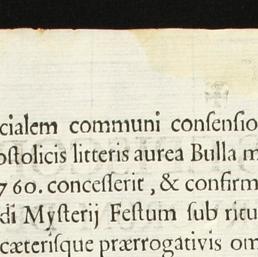 cialem communi consensio
ostolicis litteris aurea Bulla m
760. concesserit, & confirm
di Mysterij Festum sub ritu
cæterisque prærrogativis om